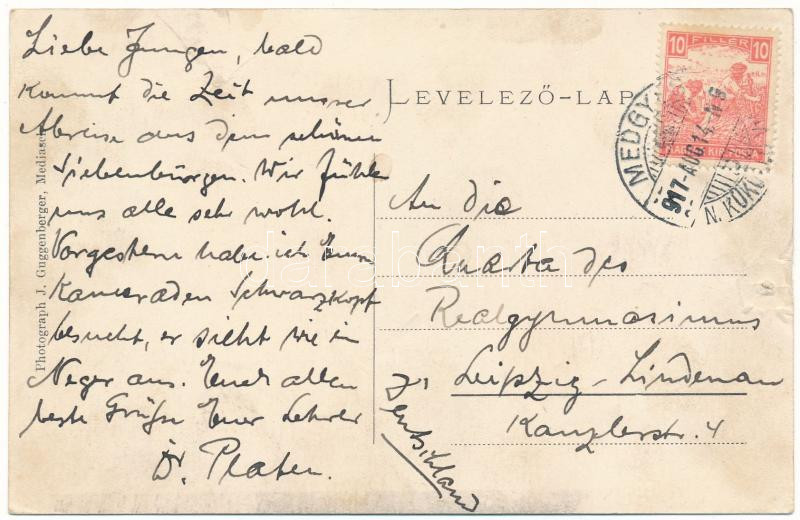 Liebe Jungen, bald
kommt die Zeit unser
Abreise aus dem schönen
Siebenbürgen. Wir fühlen
uns alle sehr wohl.
Vorgestern habe ich Euren
Kameraden Schwarzkopf
besucht, er sieht wie ein
Neger aus. Euch allen
beste Grüße Euer Lehrer
Dr. Platen.
Photograph J. Guggenberger, Medias
LEVELEZŐ-LAP
10 FILLÉR 10
MAGYAR KIR. POSTA
MEDGY
917-AUG 14
N. KÜKÜ
An die
Quarta des
Realgymnasiums
Leipzig-Lindenau
Kanzlerstr. 4
Deutschland
darabanth